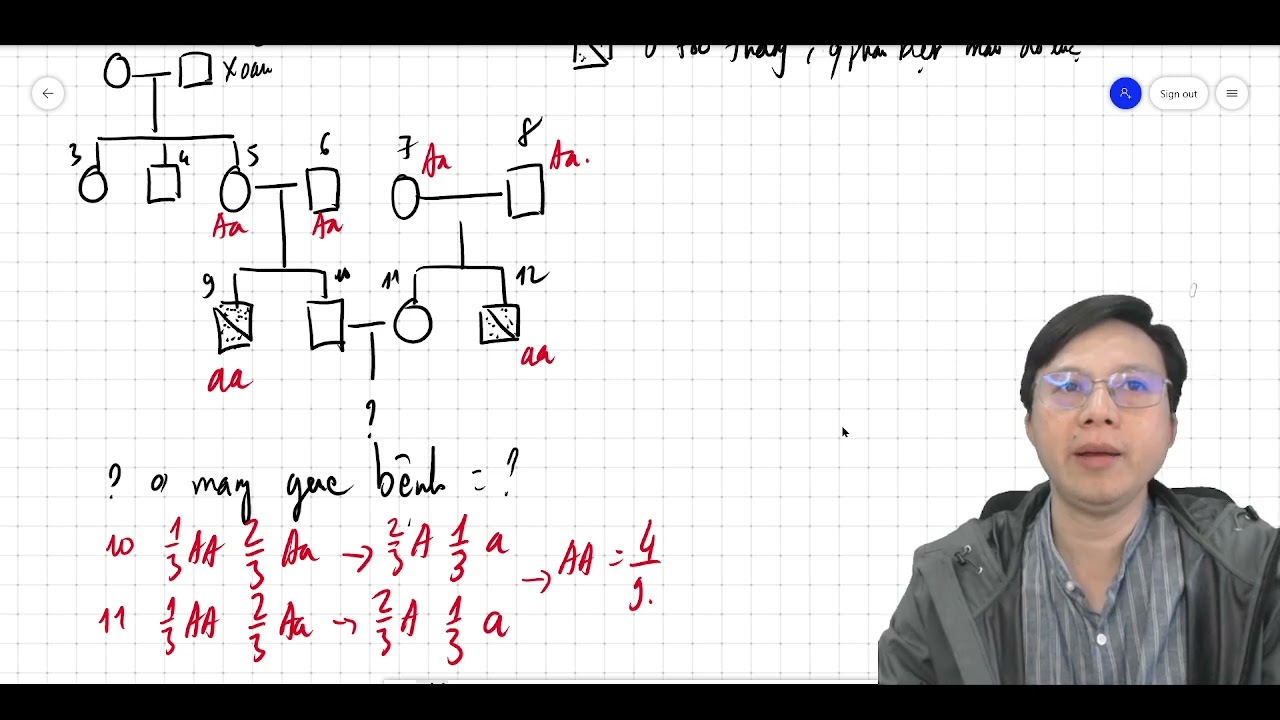 xoăn
Sign out
3 4 5 6 7 8
Aa Aa.
Aa Aa
9 10 11 12
aa aa
?
? o mang gen bệnh = ?
10 1/3 AA 2/3 Aa → 2/3 A 1/3 a
→ AA = 4/9.
11 1/3 AA 2/3 Aa → 2/3 A 1/3 a